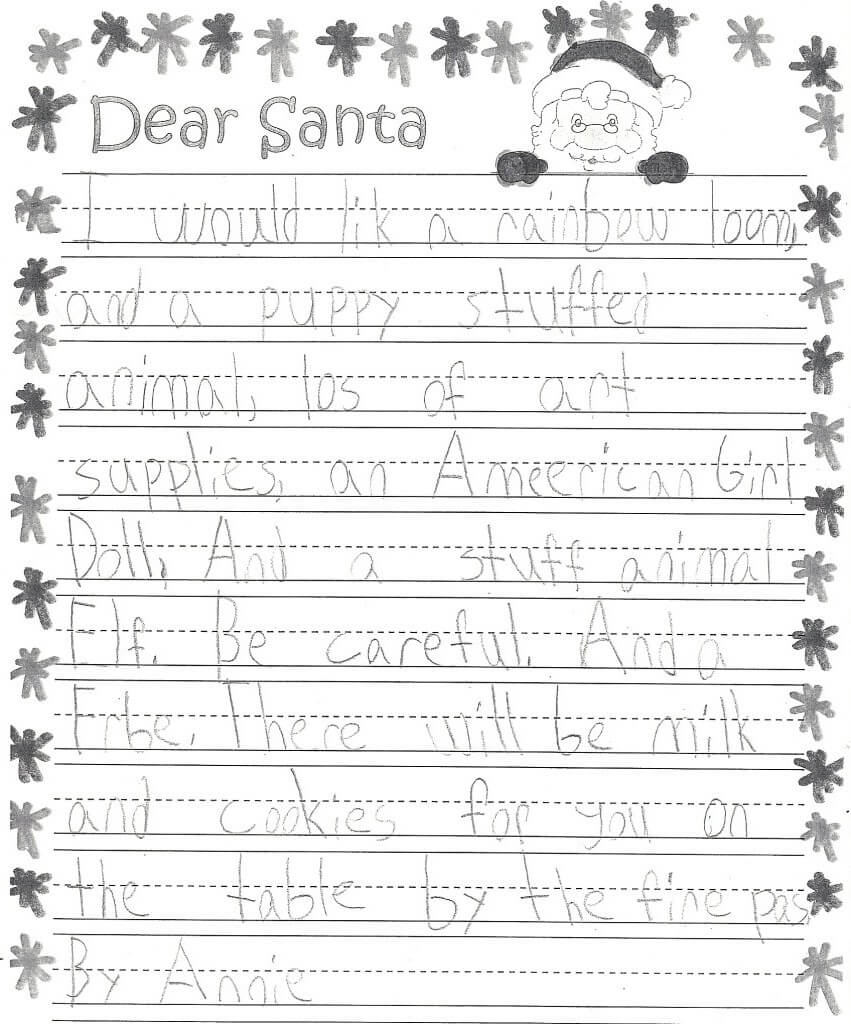 Dear Santa
I would lik a rainbow loom,
and a puppy stuffed
animal, los of art
supplies, an Ameerican Girl
Doll, And a stuff animal
Elf. Be careful. And a
Frbe. There will be milk
and cookies for you on
the table by the fire pas
By Annie